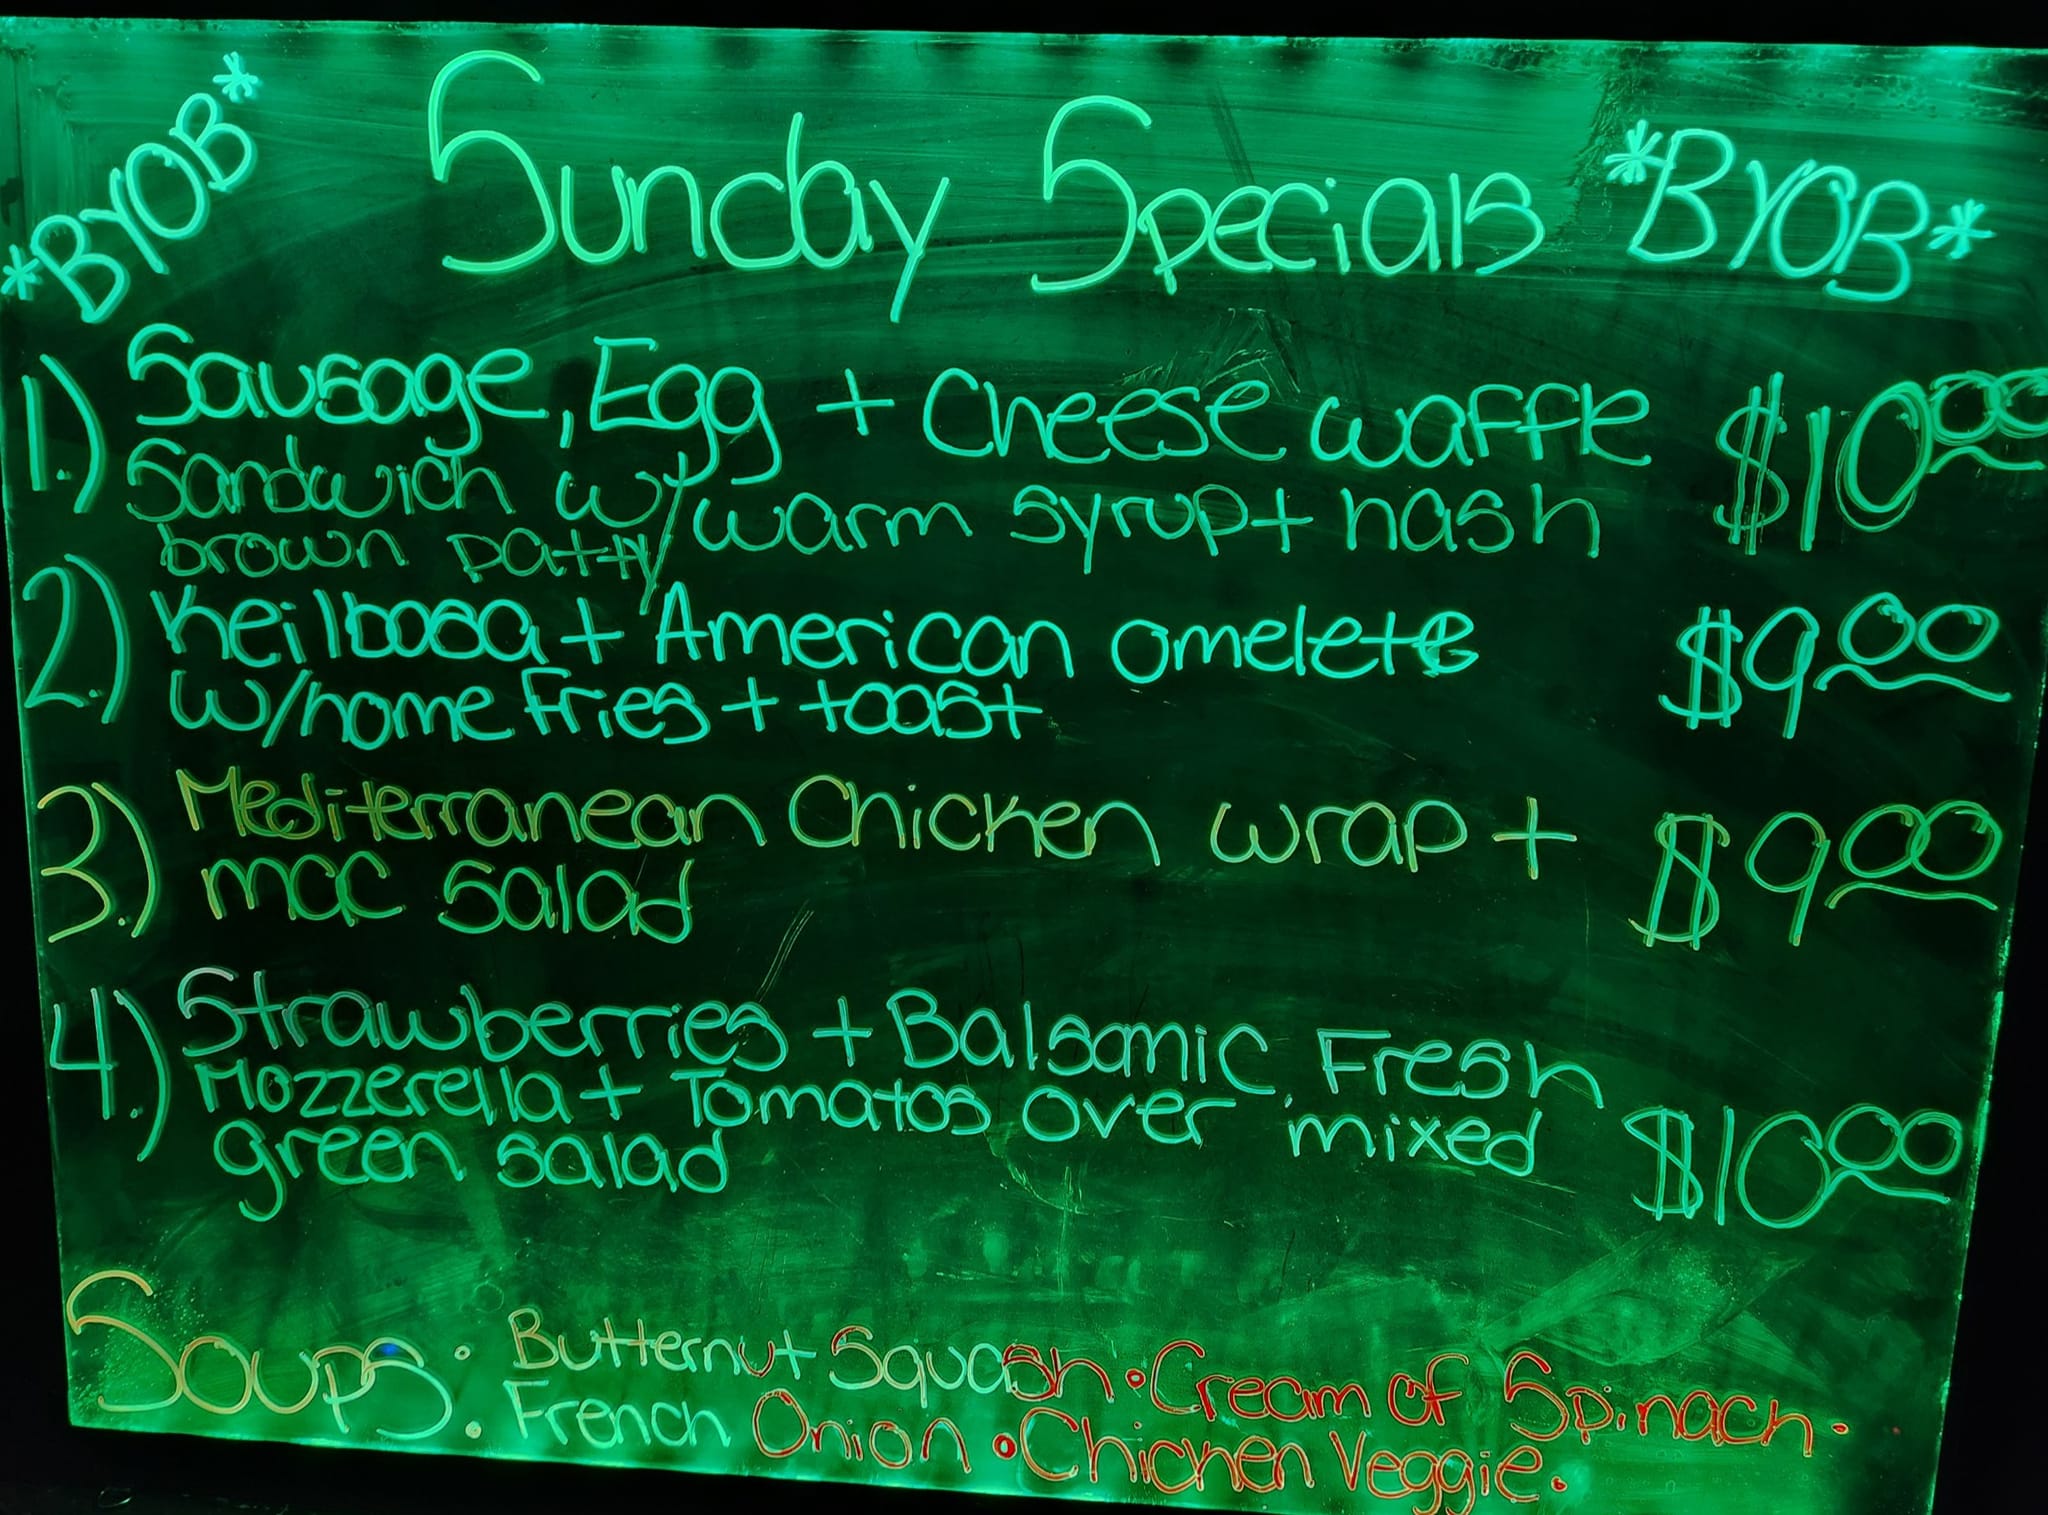 *BYOB* Sunday Specials *BYOB*
1.) Sausage, Egg + Cheese waffle $10.00
Sandwich w/ warm syrup + hash
brown patty
2.) Keilbosa + American omelette $9.00
w/home fries + toast
3.) Mediterranean Chicken wrap + $9.00
mac salad
4.) Strawberries + Balsamic Fresh
Mozzerella + Tomatos over mixed $10.00
green salad
Soups: • Butternut Squash • Cream of Spinach •
• French Onion • Chicken Veggie.